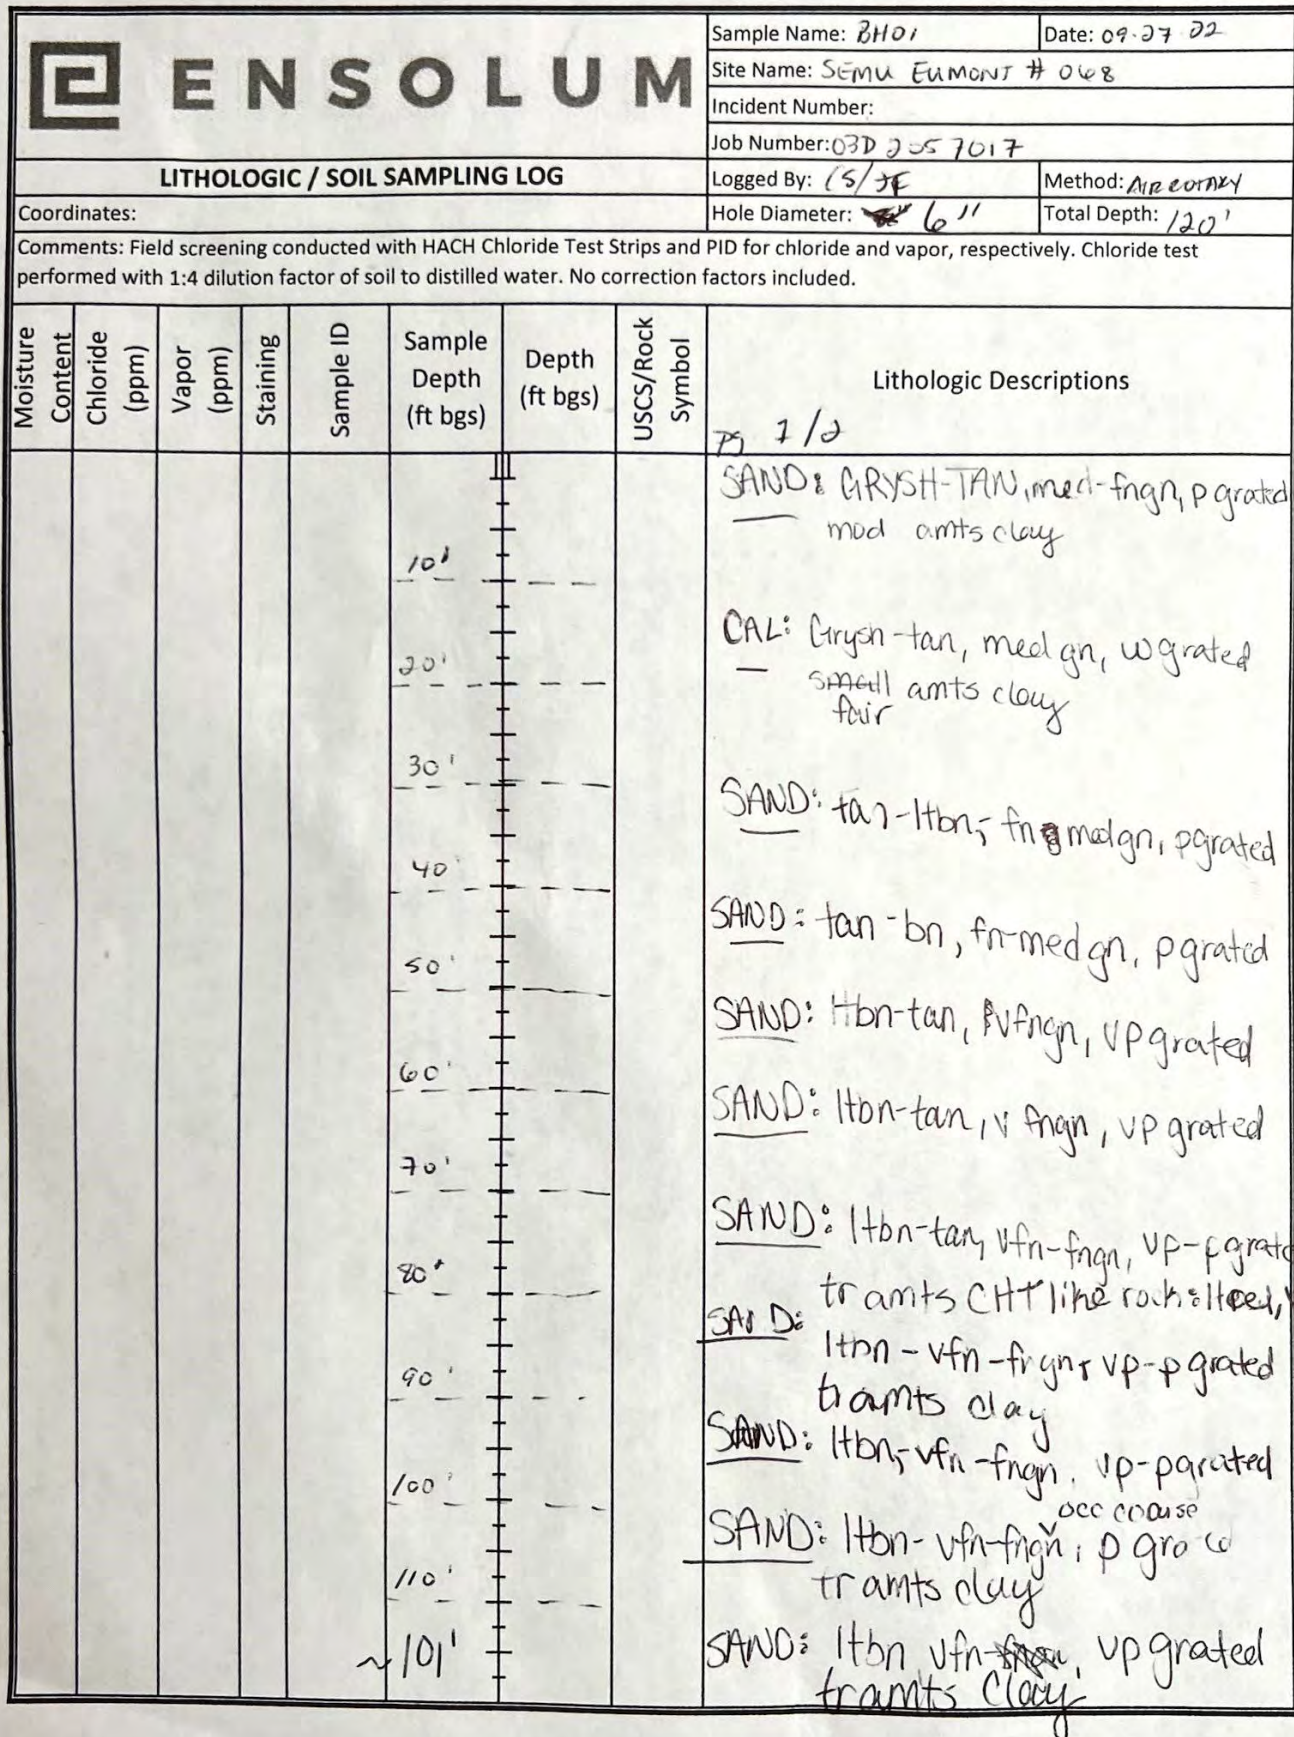 ENSOLUM
Sample Name: BH01
Date: 09-27-22
Site Name: SEMU EUMONT # 068
Incident Number:
Job Number: 03D2057017
LITHOLOGIC / SOIL SAMPLING LOG
Logged By: CS/JE
Method: AIR ROTARY
Coordinates:
Hole Diameter: 6"
Total Depth: 120'
Comments: Field screening conducted with HACH Chloride Test Strips and PID for chloride and vapor, respectively. Chloride test
performed with 1:4 dilution factor of soil to distilled water. No correction factors included.
Moisture Content
Chloride (ppm)
Vapor (ppm)
Staining
Sample ID
Sample Depth (ft bgs)
Depth (ft bgs)
USCS/Rock Symbol
Lithologic Descriptions
Pg 1/2
SAND: GRYSH-TAN, med-fngn, p grated
mod amts clay
10'
CAL: Grysh-tan, med gn, w grated
small amts clay
fair
20'
30'
SAND: tan-ltbn, fn medgn, pgrated
40'
SAND: tan-bn, fn-med gn, p grated
50'
SAND: ltbn-tan, vfngn, vp grated
60'
SAND: ltbn-tan, v fngn, vp grated
70'
SAND: ltbn-tan, vfn-fngn, vp-p grate
80'
tr amts CHT like rock:
SAND:
ltbn - vfn-fngn, vp-p grated
90'
tr amts clay
SAND: ltbn, vfn-fngn, vp-pgrated
100'
occ coarse
SAND: ltbn- vfn-fngn, p grated
110'
tr amts clay
~101'
SAND: ltbn vfn-fngn, vp grated
tr amts Clay